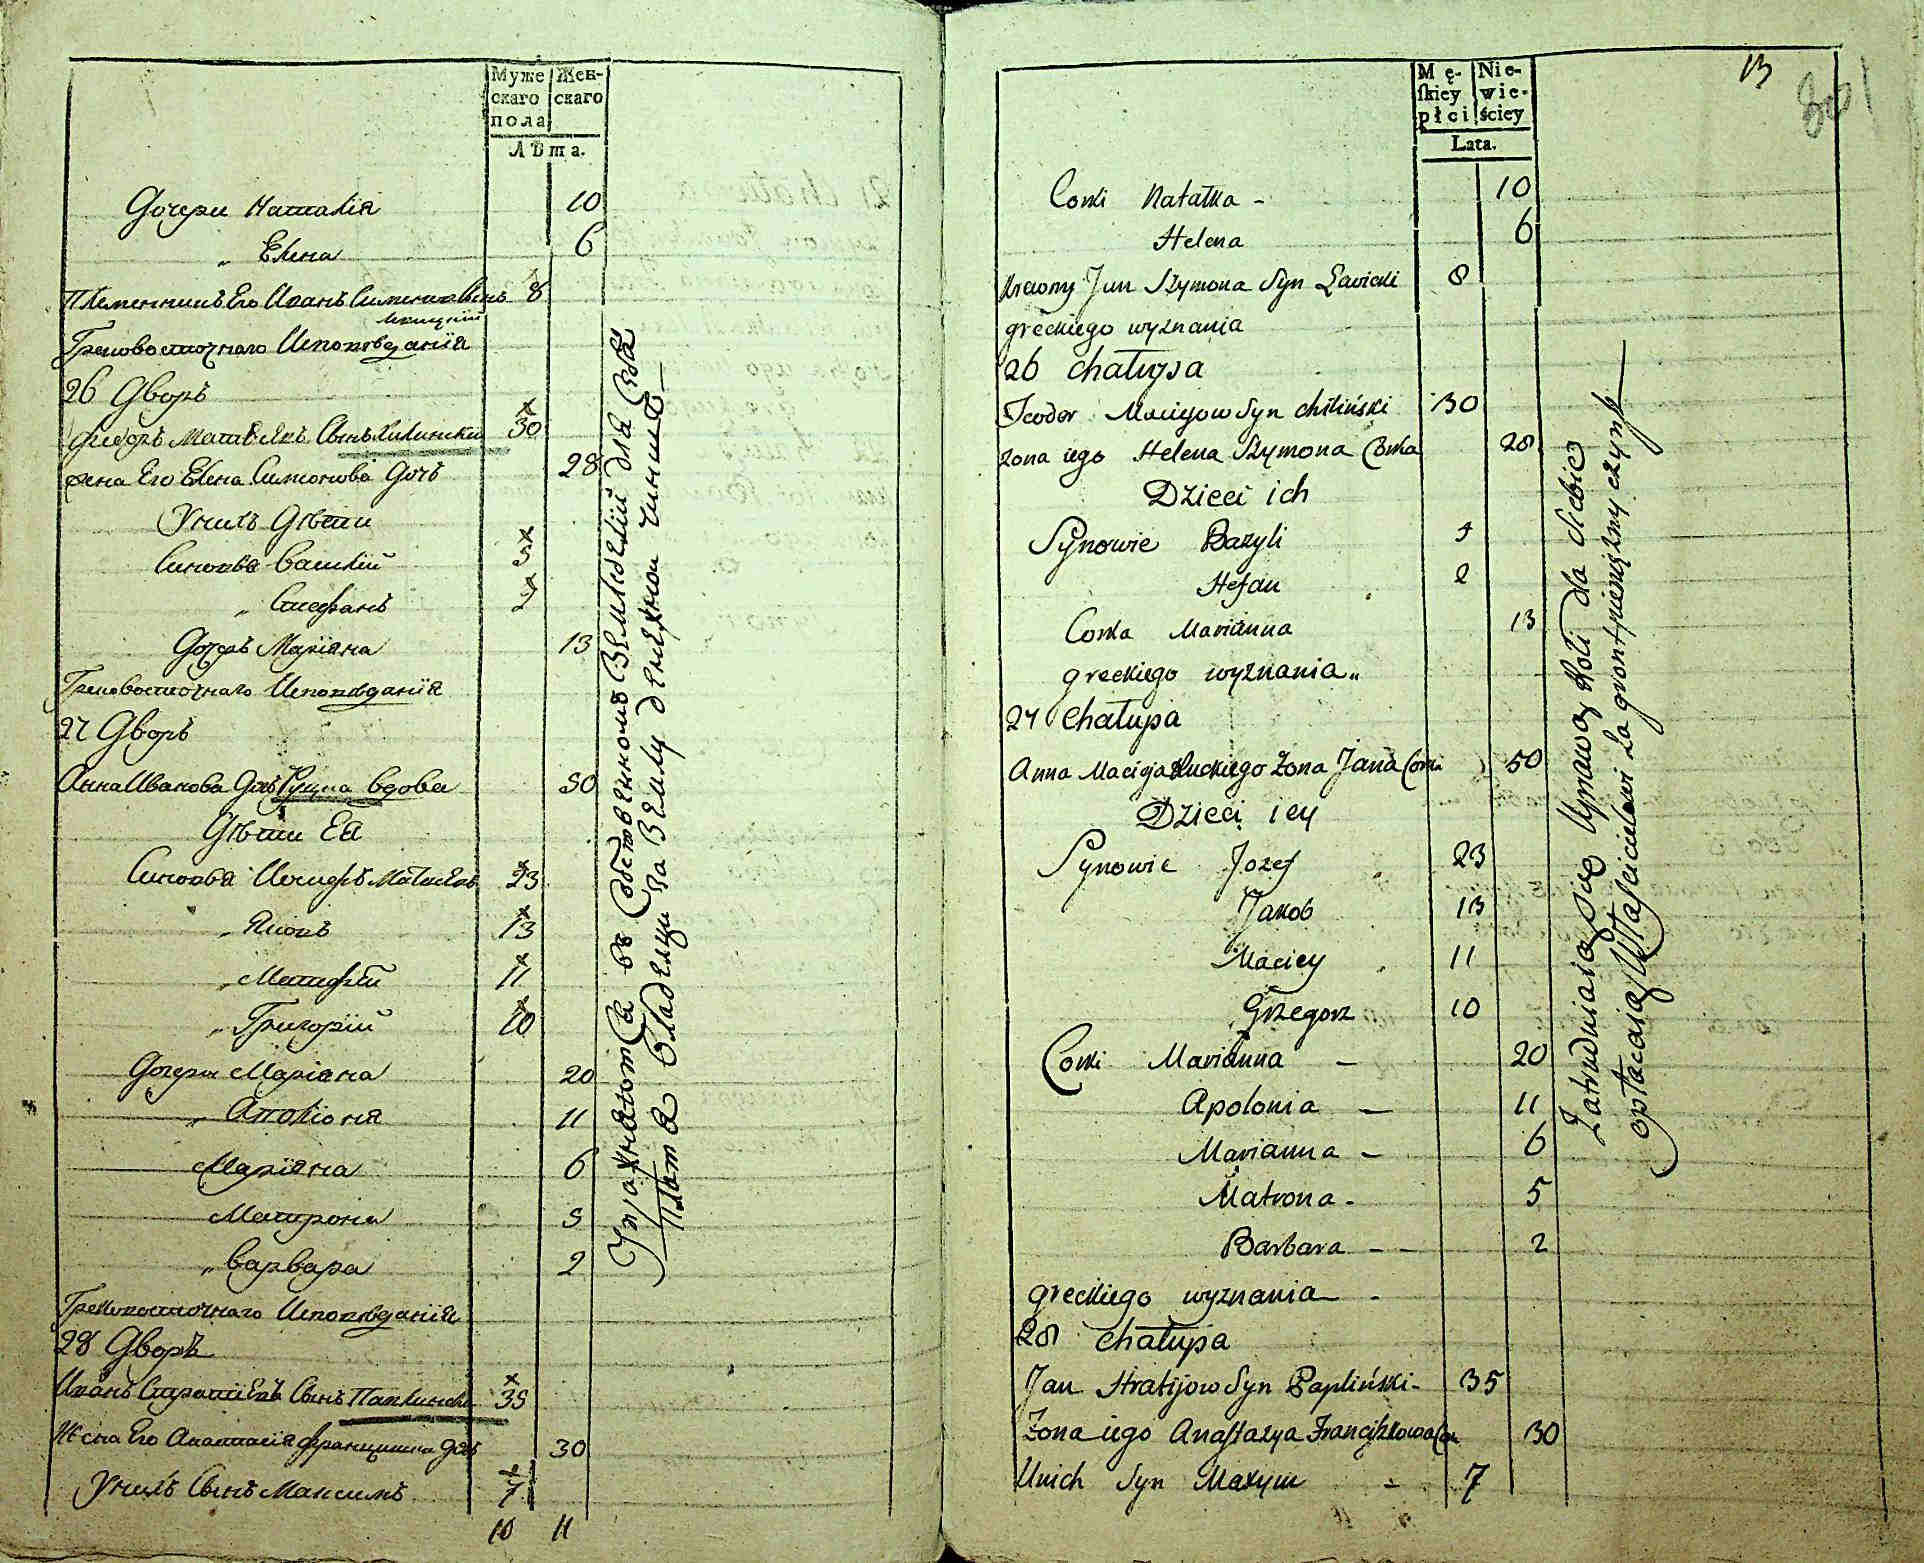 Муже
скаго
пола
Жен-
скаго
Лѣта.
Дочери Наталія 10
„ Елена 6
Племенникъ Его Иванъ Симоновъ Сынъ 8
Грековосточнаго Исповѣданія
26 Дворъ
Федоръ Матвѣевъ Сынъ Хилински 30
жена Его Елена Симонова Дочь 28
Унихъ Дѣти
Синовья Василій
„ Стефанъ 2
Дочерь Маріяна 13
Грековосточнаго Исповѣданія
27 Дворъ
Анна Иванова Дочь вдова 50
Дѣти Ея
Синовья Иосифъ Матвѣевъ 23
„ Яковъ 13
„ Матфѣй 11
„ Григорій 10
Дочери Маріана 20
„ Аполіонія 11
Маріяна 6
Матрона 5
„ Варвара 2
Грековосточнаго Исповѣданія
28 Дворъ
Иванъ Сынъ 35
Жена Его Анастасія Францишка Дочь 30
Унихъ Сынъ Максимъ 7
10 11
Упражняются въ Собственномъ Земледелии для Себя
Плату Владелцу за Землю денежною чинитъ —
13
801
Mę-
skiey
płci
Nie-
wie-
ściey
Lata.
Corki Natałka - 10
Helena 6
Krewny Jan Szymona Syn Ławicki 8
greckiego wyznania
26 chałupa
Teodor Macieyow Syn chiliński 30
zona iego Helena Szymona Corka 28
Dzieci ich
Synowie Bazyli
Stefan 2
Corka Marianna 13
greckiego wyznania „
27 chałupa
Anna Macieja Łuckiego Zona Jana Corka 50
Dzieci iey
Synowie Jozef 23
Jakob 13
Maciey 11
Grzegorz 10
Corki Marianna — 20
Apolonia — 11
Marianna - 6
Matrona - 5
Barbara - - 2
greckiego wyznania -
28 chałupa
Jan Stratijow Syn Papliński - 35
Zona iego Anastazya Franciszkowa Cor 30
Unich Syn Maxym - 7
Zatrudniaią się Uprawą Roli dla siebie
opłacaią Właścicielowi za gront pieniężny czynsz